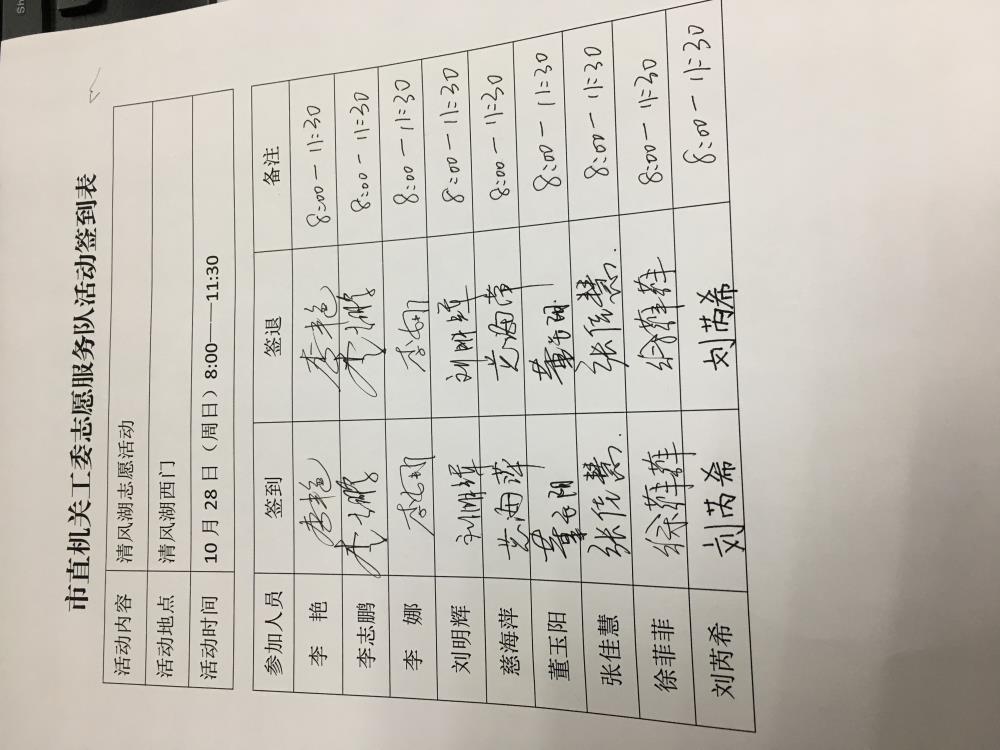 市直机关工委志愿服务队活动签到表
活动内容 清风湖志愿活动
活动地点 清风湖西门
活动时间 10月28日（周日）8:00——11:30
参加人员 签到 签退 备注
李 艳 李艳 李艳 8:00-11:30
李志鹏 李志鹏 李志鹏 8:00-11:30
李 娜 李娜 李娜 8:00-11:30
刘明辉 刘明辉 刘明辉 8:00-11:30
慈海萍 慈海萍 慈海萍 8:00-11:30
董玉阳 董玉阳 董玉阳 8:00-11:30
张佳慧 张佳慧 张佳慧. 8:00-11:30
徐菲菲 徐菲菲 徐菲菲 8:00-11:30
刘芮希 刘芮希 刘芮希 8:00-11:30